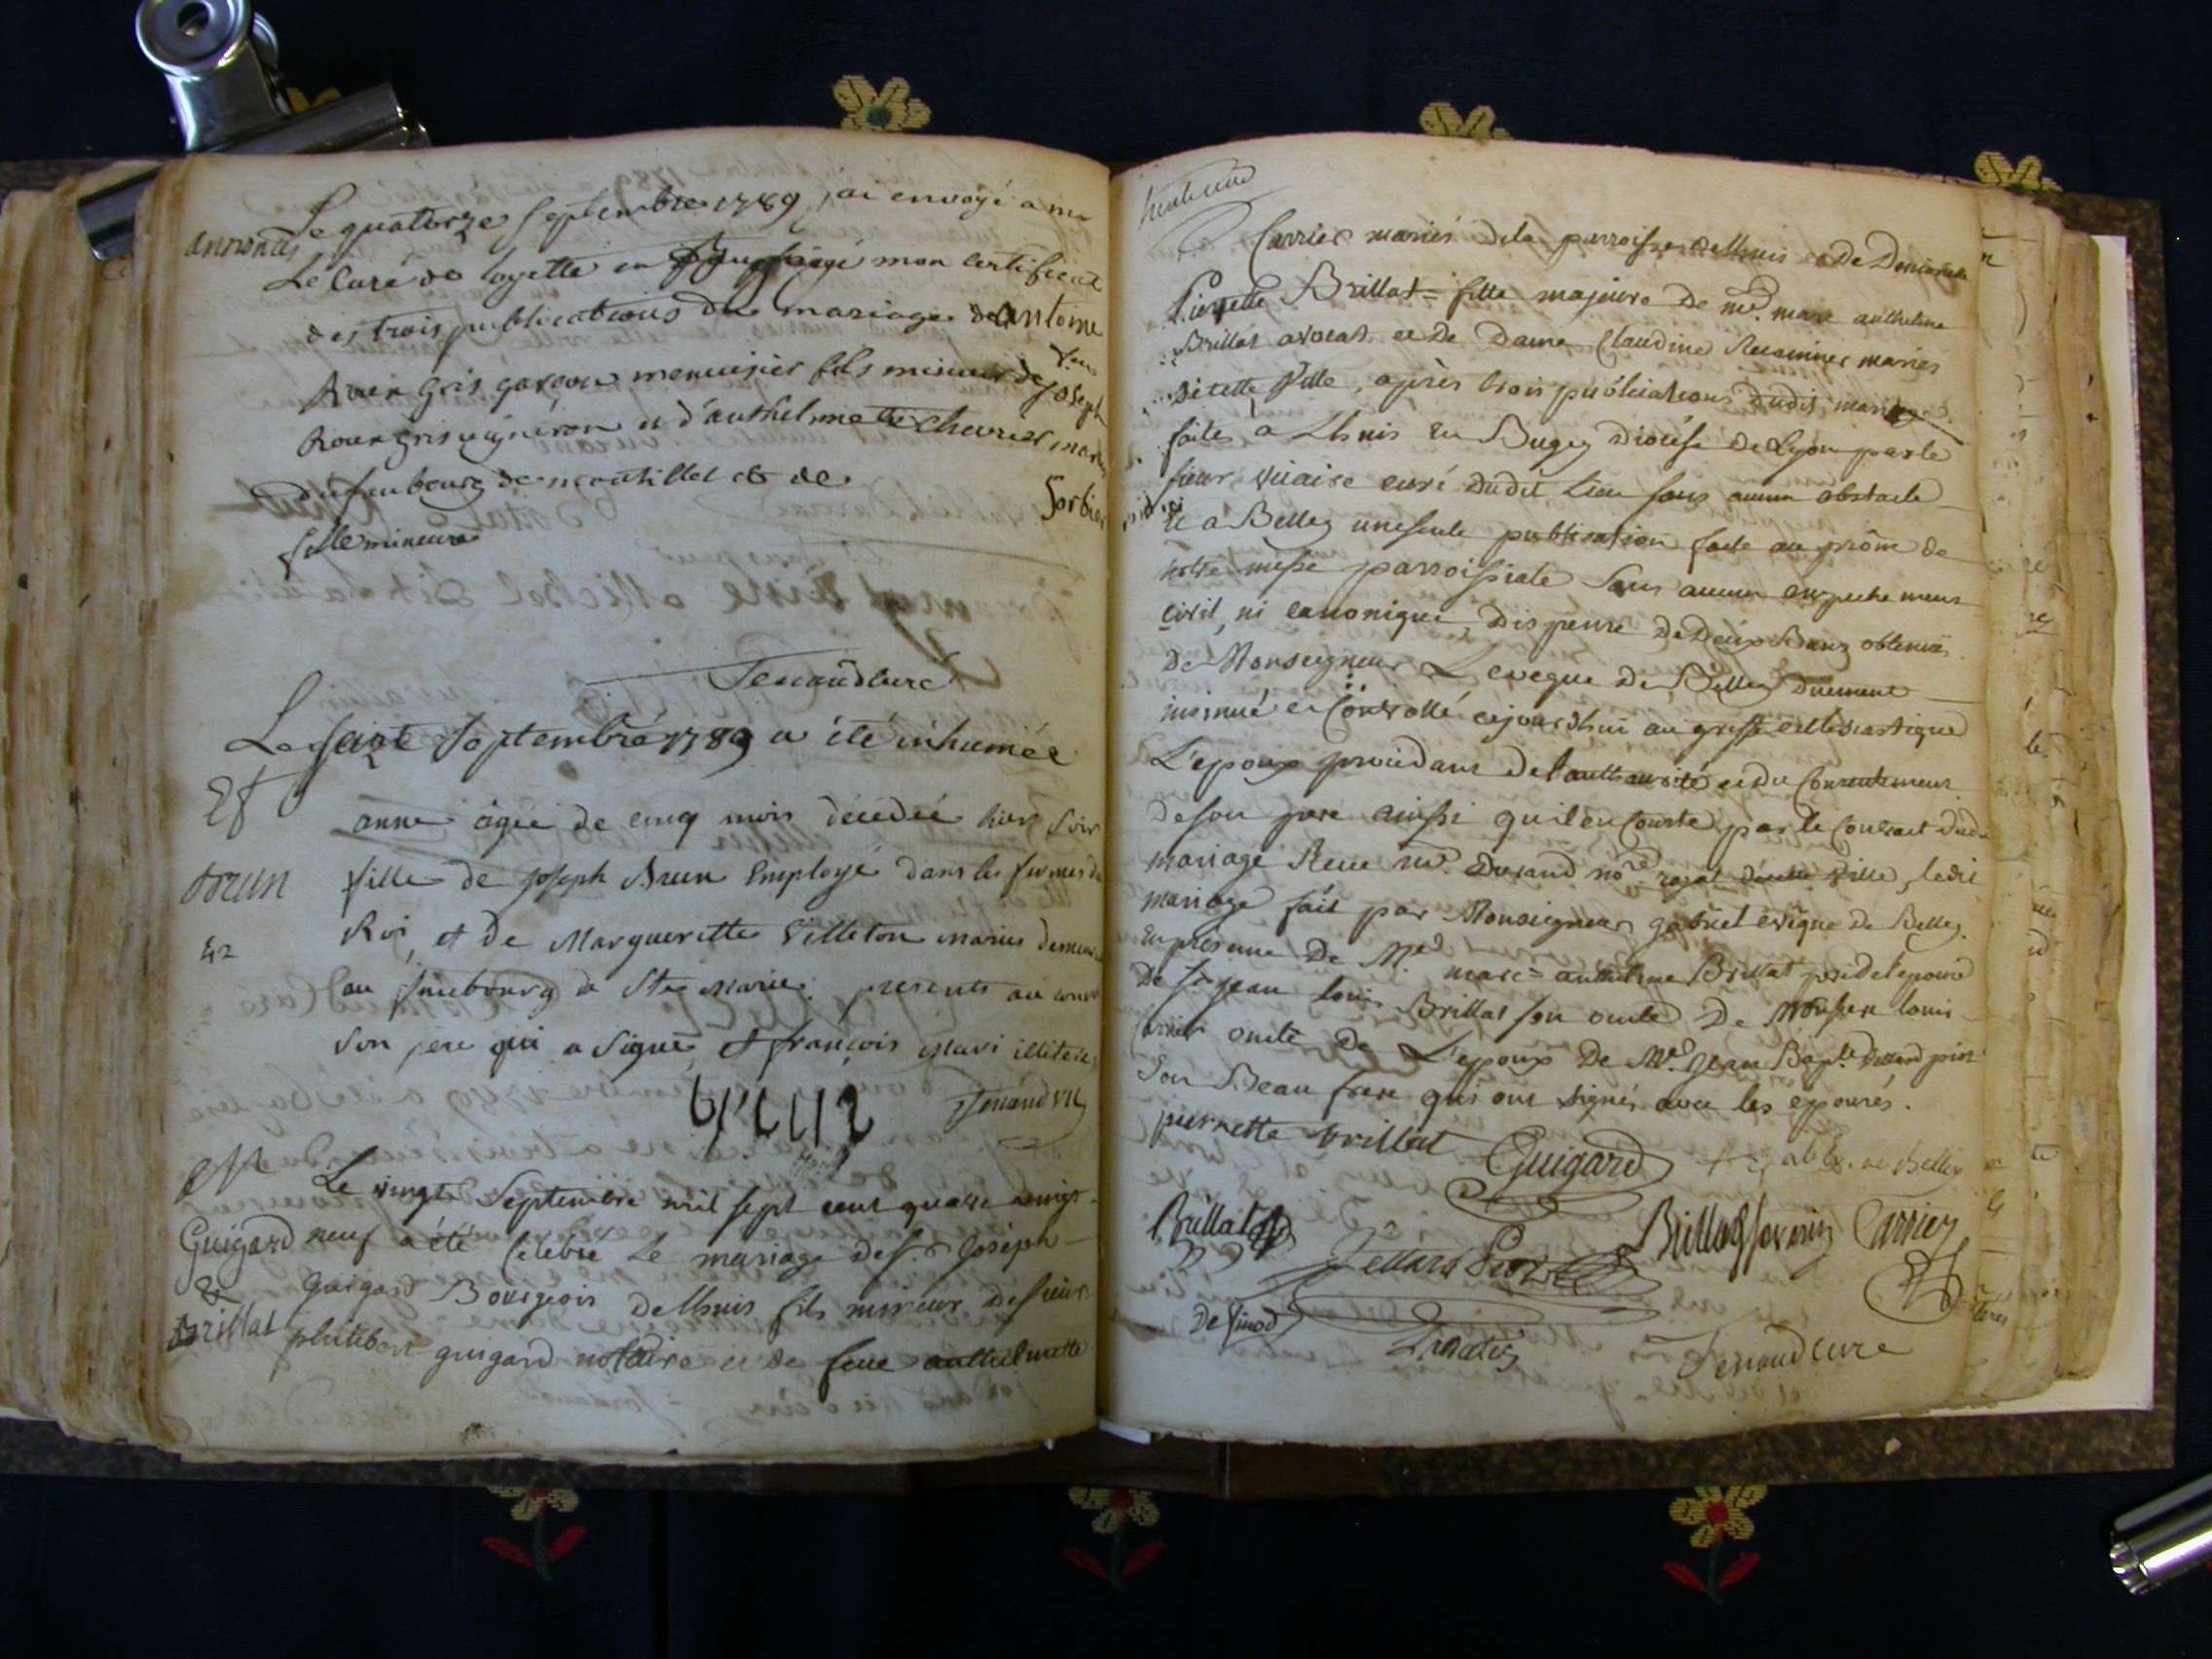 annonces
Le quatorze Septembre 1789 j'ai envoyé a mr
Le Curé de loyette en mon Certificat
des trois publications du mariage de antoine
Rouxgris garcon menuisier fils mineur de feu joseph
Rouxgris vigneron et d'anthelmette Chevrier mariés
du faubourg de montillet et de Sorbier
fille mineure
fenaud curé
Le Saize Septembre 1789 a été inhumée
Et
brun
42
anne agée de cinq mois décédée hier Soir
fille de joseph Brun Employé dans les fermes du
Roi, et de Margueritte Villeton mariés demeurant
au fauxbourg de Ste Marie. presents au convoi
Son pere qui a Signé, et françois illiteré
fenaud
Guigard
&
Brillat
Le vingt Septembre mil sept cent quatre vingt
neuf a été Celebré Le mariage de Sr. Joseph
Guigard Bourgeois de Lhuis fils mineur de Sieur
philibert guigard notaire et de feue anthelmette
Carrier mariés de la parroisse de Lhuis et de Demoiselle
Pierrette Brillat = fille majeure de me. marc anthelme
Brillat avocat et de Dame Claudine Recamier mariés
de cette Ville, après trois publications dudit mariage
faites a Lhuis en Bugey Diocèse de Lyon par le
sieur curé dudit Lieu sans aucun obstacle
et a Belley une seule publication faite au prône de
notre messe parroissiale Sans aucun empechement
civil, ni canonique, Dispense De Deux Bans obtenue
De Monseigneur L'eveque De Belley Duement
insinué et Controllé cejourd'hui au greffe ecclesiastique
L'epoux procedant de l'authorité et du Consentement
de son pere ainsi qu'il en Conste par le Contrat dudit
mariage Recu me. Durand nore. royal de cette Ville, ledit
mariage fait par Monseigneur gabriel evêque De Belley
en presence De Me. marc = anthelme Brillat pere de l'epouse
De Sr. jean Louis Brillat son oncle De Monsieur louis
Carrier oncle De L'epoux De Me. Jean Bapte.
Son Beau frere qui ont signés avec les epousés.
pierrette brillat
Guigard
+ g. de Belley
Brillat
Brillat Savarin
Carrier
De Sinod
fenaud curé